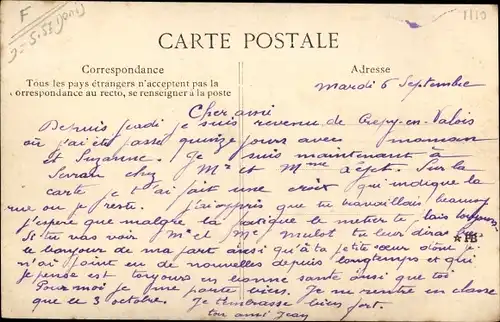 F
3-5-57
1110
CARTE POSTALE
Correspondance
Adresse
Tous les pays étrangers n'acceptent pas la
correspondance au recto, se renseigner à la poste
Mardi 6 Septembre
Cher ami
Depuis Jeudi je suis revenu de Crépy-en-Valois
où j'ai été passé quinze jours avec maman
et Suzanne. Je suis maintenant à
chez Mr et Mme Sur la
carte je t'ai fait une croix qui indique la
rue ou je reste. J'ai appris que tu travaillais beaucoup
j'espère que malgré la fatigue le metier te plais toujours
Si tu vas voir Mr et Me Mulot tu leur diras bien
le bonjour de ma part ainsi qu'à ta petite sœur dont je
n'ai point eu de nouvelles depuis longtemps et qui
je pense est toujours en bonne santé ainsi que toi
Pour moi je me porte bien. Je ne rentre en classe
que le 3 octobre. Je t'embrasse bien fort.
ton ami Jean